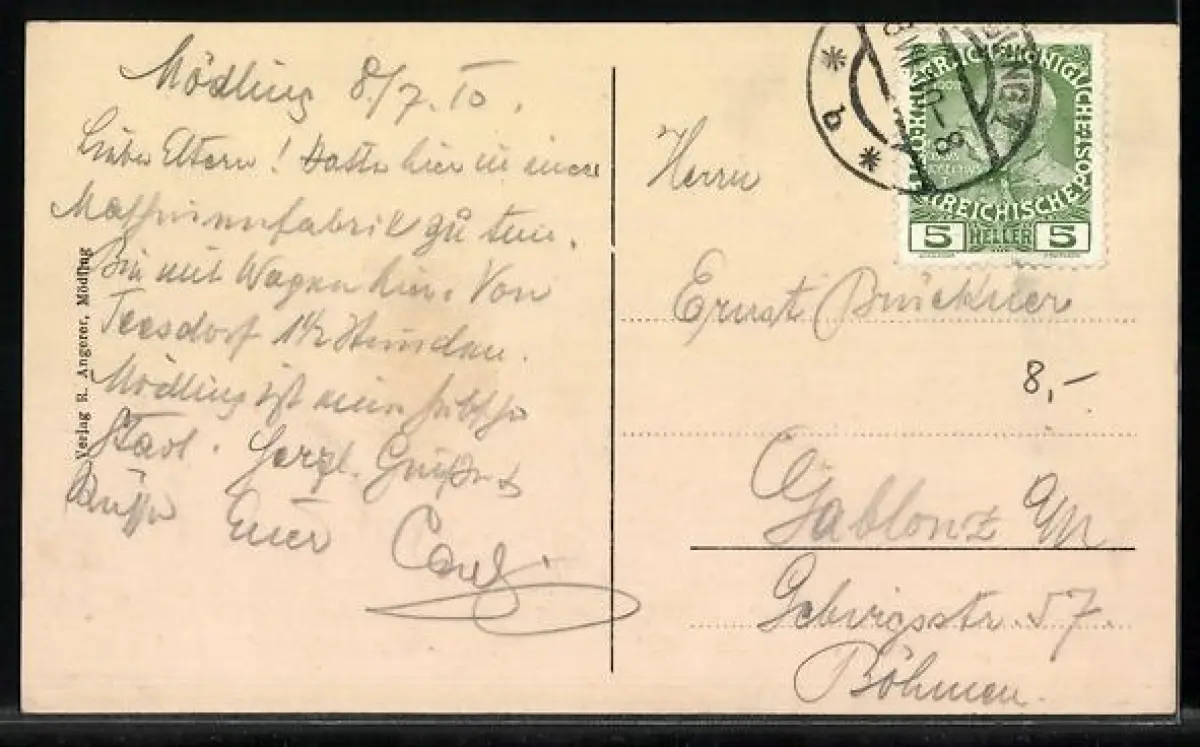 Mödling 8/7.10.
Liebe Eltern! Hatte hier in einer
Maschinenfabrik zu tun.
Bin mit Wagen hier. Von
Teesdorf 1½ Stunden.
Mödling ist eine hübsche
Stadt. Herzl. Grüße &
Küsse Euer Carl
Verlag R. Angerer, Mödling
Herrn
Ernst Brückner
8,-
Gablonz a/N
Gebirgsstr. 57
Böhmen.
REICHISCHE POST
5 HELLER 5
* b *